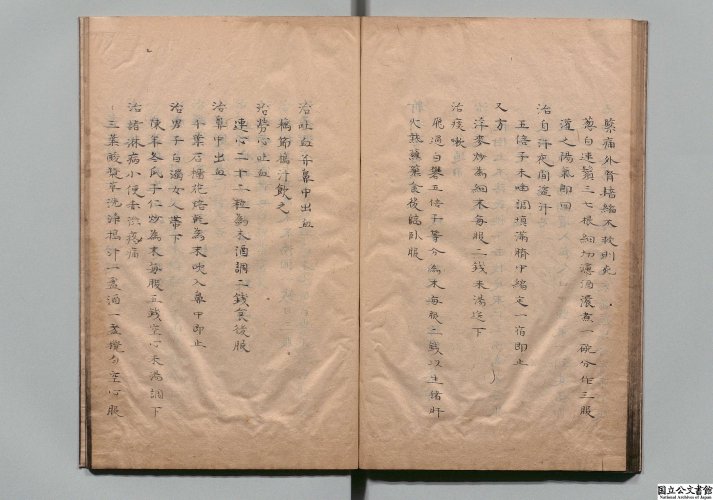 藥痛外腎搐縮不救則死
葱白連鬚三七根細切濾酒濃煮一碗分作三服
進之陽氣即回
治自汗夜間盗汗
五倍子末唾調填滿臍中縛定一宿即止
又方
浮麥炒為細末每服二錢米湯送下
治痰嗽
飛過白礬五倍子等分為末每服錢以生猪肝
火炙蘸藥食後臨卧服
治吐血并鼻中出血
藕節搗汁飲之
治勞心吐血
蓮心二十二粒為末酒調二錢食後服
治鼻中出血
千葉石榴花焙乾為末吹入鼻中即止
治男子白濁女人帶下
陳年冬瓜子仁炒為末每服五錢空心米湯調下
治諸淋病小便赤澁疼痛
三葉酸漿草洗淨搗汁一盞酒一盞攪匀空心服
国立公文書館
National Archives of Japan